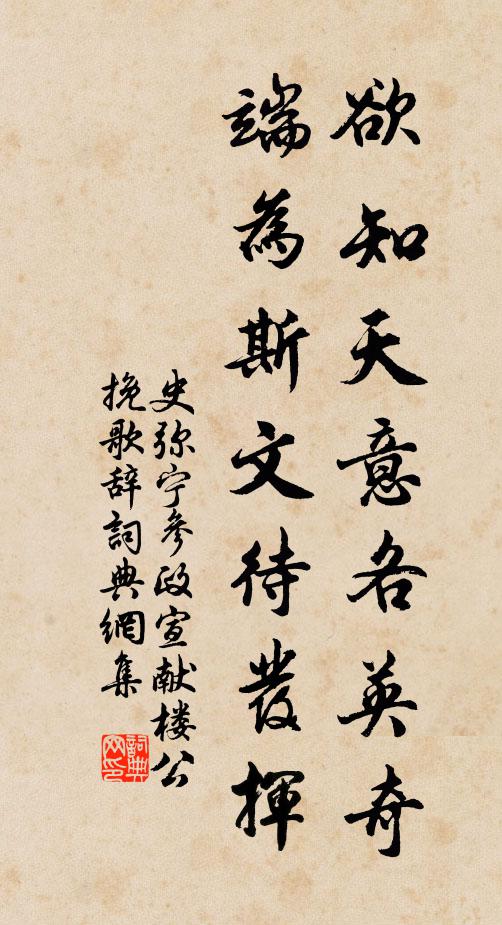 欲知天意各英奇
端為斯文待發揮
史弥宁參政宣献楼公
挽歌辞詞典網集
詞典网印